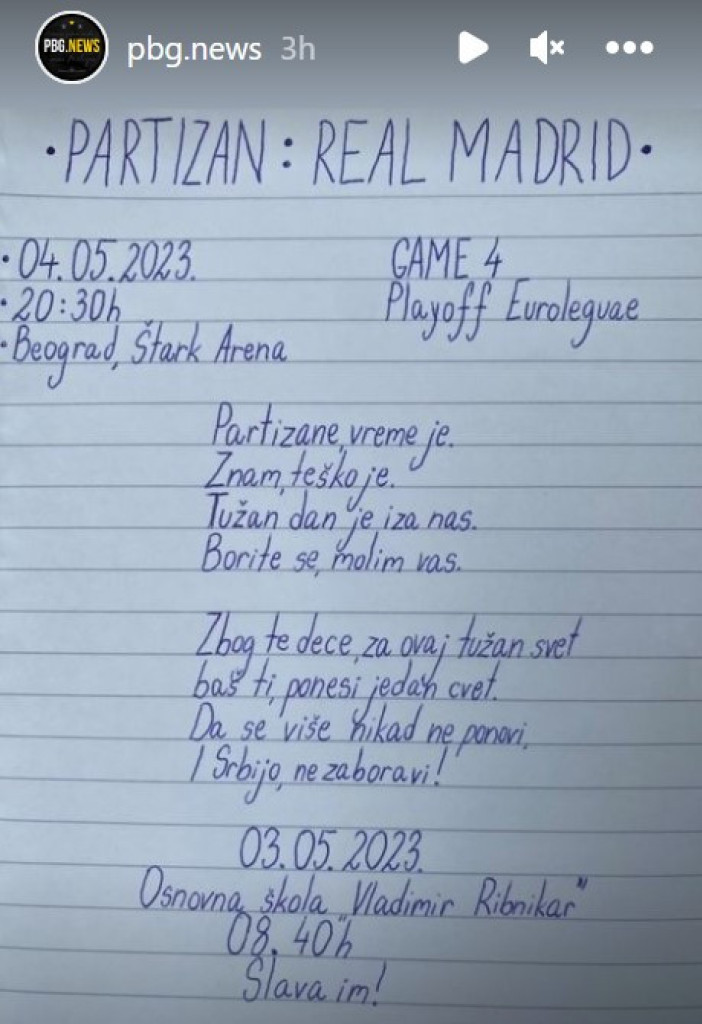 PBG.NEWS
pbg.news 3h
• PARTIZAN : REAL MADRID •
• 04.05.2023.
GAME 4
• 20:30h
Playoff Euroleguae
• Beograd, Štark Arena
Partizane, vreme je.
Znam, teško je.
Tužan dan je iza nas.
Borite se, molim vas.
Zbog te dece, za ovaj tužan svet
baš ti, ponesi jedan cvet.
Da se više nikad ne ponovi,
I Srbijo, ne zaboravi!
03.05.2023.
Osnovna škola "Vladimir Ribnikar"
08.40h
Slava im!